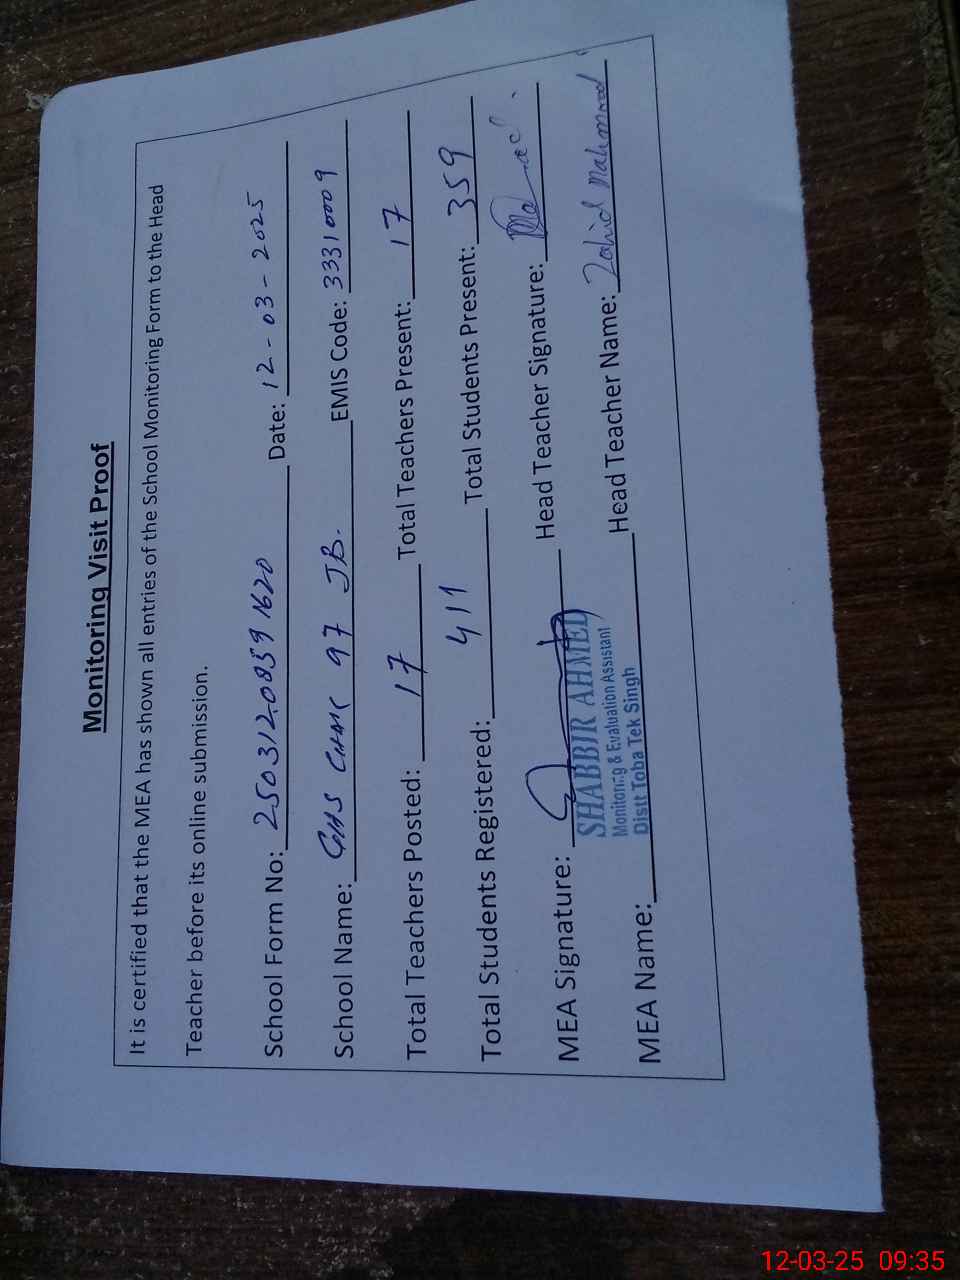 Monitoring Visit Proof
It is certified that the MEA has shown all entries of the School Monitoring Form to the Head
Teacher before its online submission.
School Form No: 2503120859 1620 Date: 12-03-2025
School Name: GHS CHAK 97 JB. EMIS Code: 33310009
Total Teachers Posted: 17 Total Teachers Present: 17
Total Students Registered: 411 Total Students Present: 359
MEA Signature: Head Teacher Signature:
SHABBIR AHMED
Monitoring & Evaluation Assistant
Distt Toba Tek Singh
MEA Name: Head Teacher Name: Zahid Mahmood
12-03-25 09:35